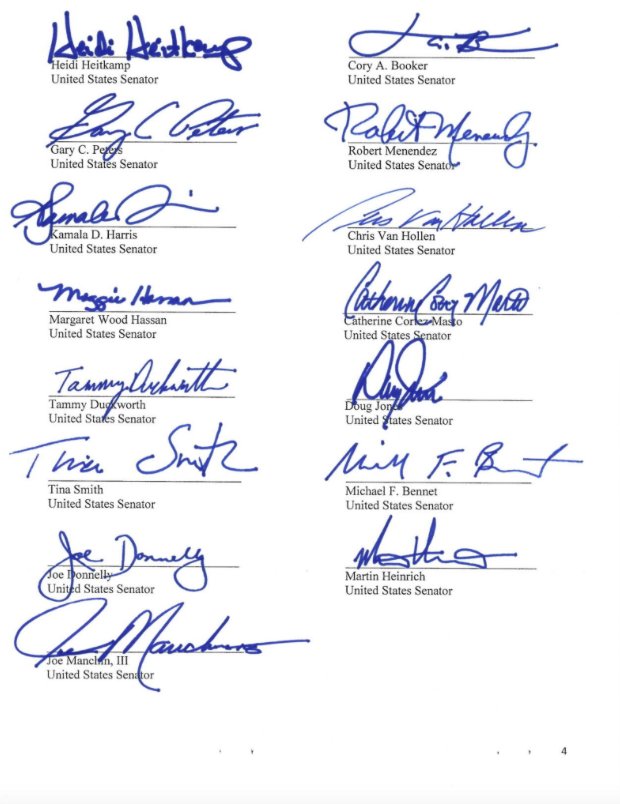 Heidi Heitkamp
Heidi Heitkamp
United States Senator
Cory A. Booker
United States Senator
Gary C Peters
Gary C. Peters
United States Senator
Robert Menendez
Robert Menendez
United States Senator
Kamala
Kamala D. Harris
United States Senator
Chris Van Hollen
Chris Van Hollen
United States Senator
Maggie Hassan
Margaret Wood Hassan
United States Senator
Catherine Cortez Masto
Catherine Cortez Masto
United States Senator
Tammy Duckworth
Tammy Duckworth
United States Senator
Doug Jones
Doug Jones
United States Senator
Tina Smith
Tina Smith
United States Senator
F. B
Michael F. Bennet
United States Senator
Joe Donnelly
Joe Donnelly
United States Senator
Martin Heinrich
United States Senator
Joe Manchin
Joe Manchin, III
United States Senator
4